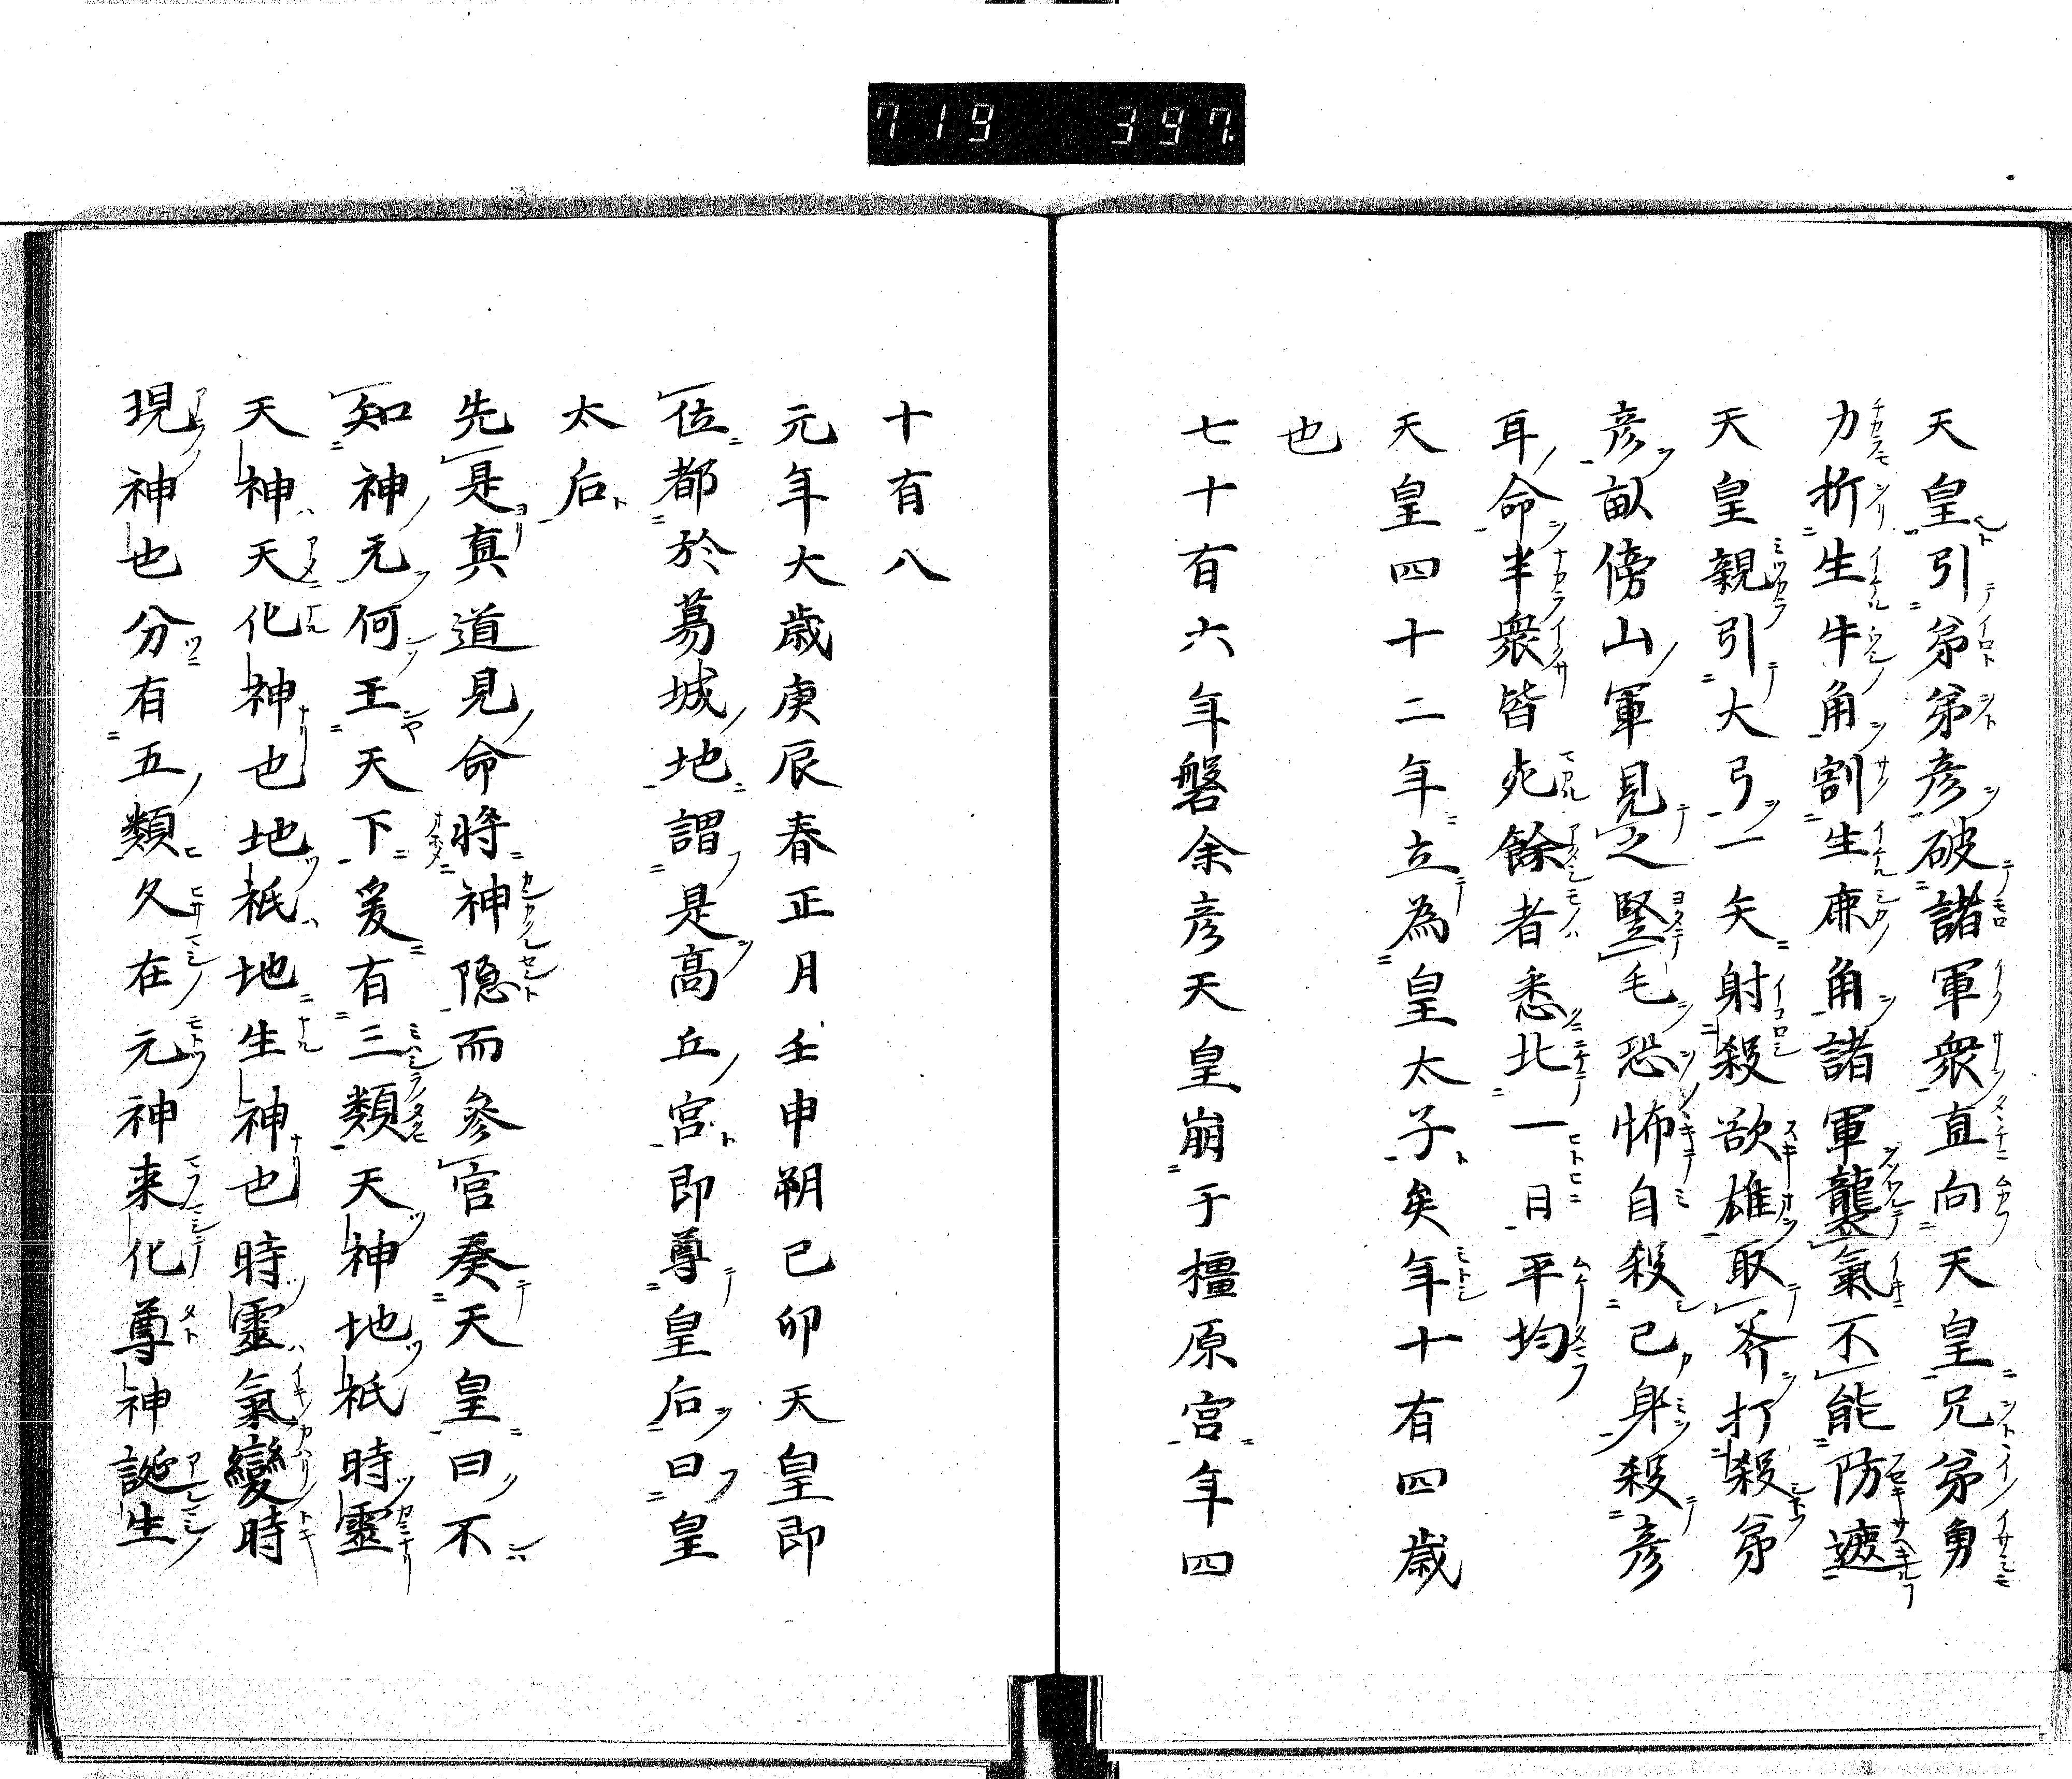 719 397
天皇引弟弟彦破諸軍衆直向天皇兄弟勇
力折生牛角割生鹿角諸軍襲氣不能防遮
天皇親引大弓一矢射殺欲雄取斧打殺弟
彦畝傍山軍見之竪毛恐怖自殺己身殺彦
耳命半衆皆死餘者悉北一日平均
天皇四十二年立為皇太子矣年十有四歳
也
七十有六年磐余彦天皇崩于橿原宮年四
十有八
元年大歳庚辰春正月壬申朔己卯天皇即
位都於葛城地謂是高丘宮即尊皇后曰皇
太后
先是真道見命将神隠而参宮奏天皇曰不
知神元何王天下爰有三類天神地祇時靈
天神天化神也地祇地生神也時靈氣變時
現神也分有五類久在元神来化尊神誕生